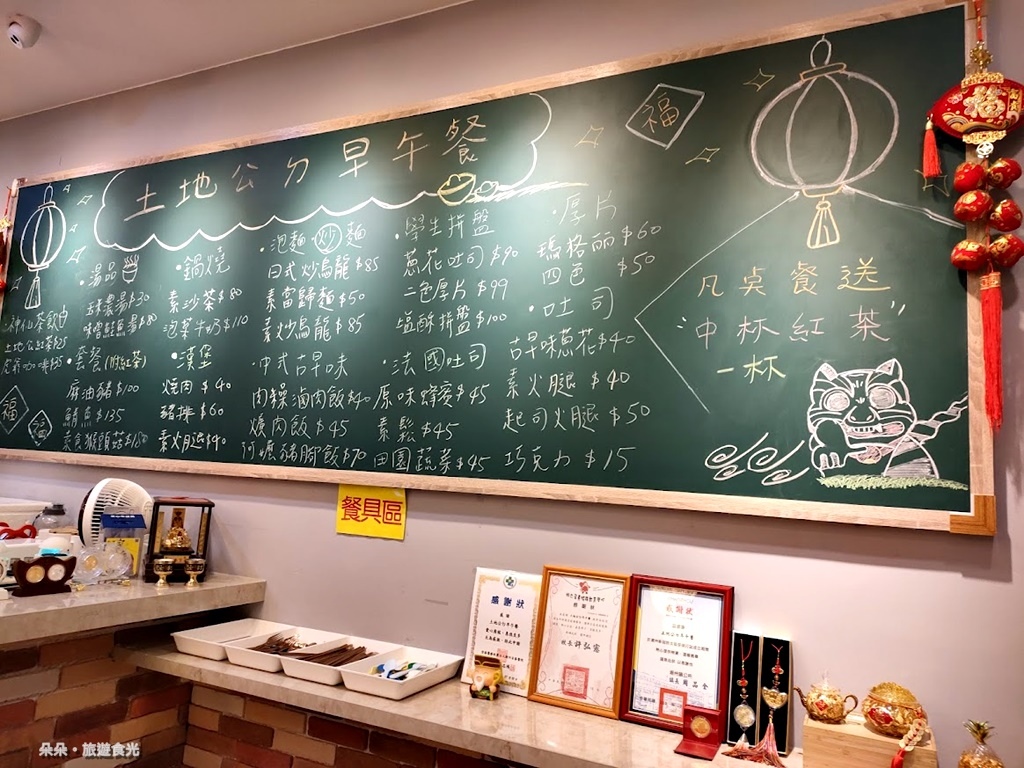 土地公ㄉ早午餐
福
·湯品
玉米濃湯$30
味噌鮭魚湯$80
神仙茶飲
土地公紅茶$25
·套餐(附紅茶)
麻油豬$100
鯖魚$135
素食猴頭菇$150
福
福
·鍋燒
素沙茶$80
泡菜牛奶$110
·漢堡
燒肉$40
豬排$60
素火腿$40
·泡麵 炒麵
日式炒烏龍$85
素當歸麵$50
素炒烏龍$85
·中式古早味
肉燥滷肉飯$40
爌肉飯$45
阿嬤豬腳飯$70
·學生拼盤
蔥花吐司$90
二色厚片$99
塩酥拼盤$100
·法國吐司
原味蜂蜜$45
素鬆$45
田園蔬菜$45
·厚片
瑪格麗$60
四色$50
·吐司
古早味蔥花$40
素火腿$40
起司火腿$50
巧克力$15
凡桌餐送
"中杯紅茶"
一杯
福
餐具區
感謝狀
感謝狀
校長許弘憲
感謝狀
朵朵·旅遊食光